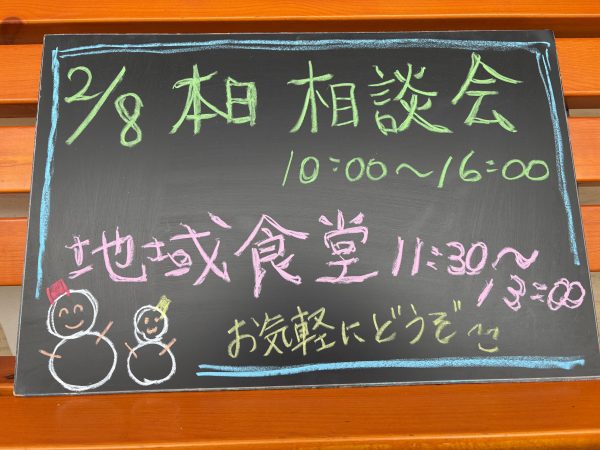 2/8 本日 相談会
10:00～16:00
地域食堂 11:30～
13:00
お気軽にどうぞ～